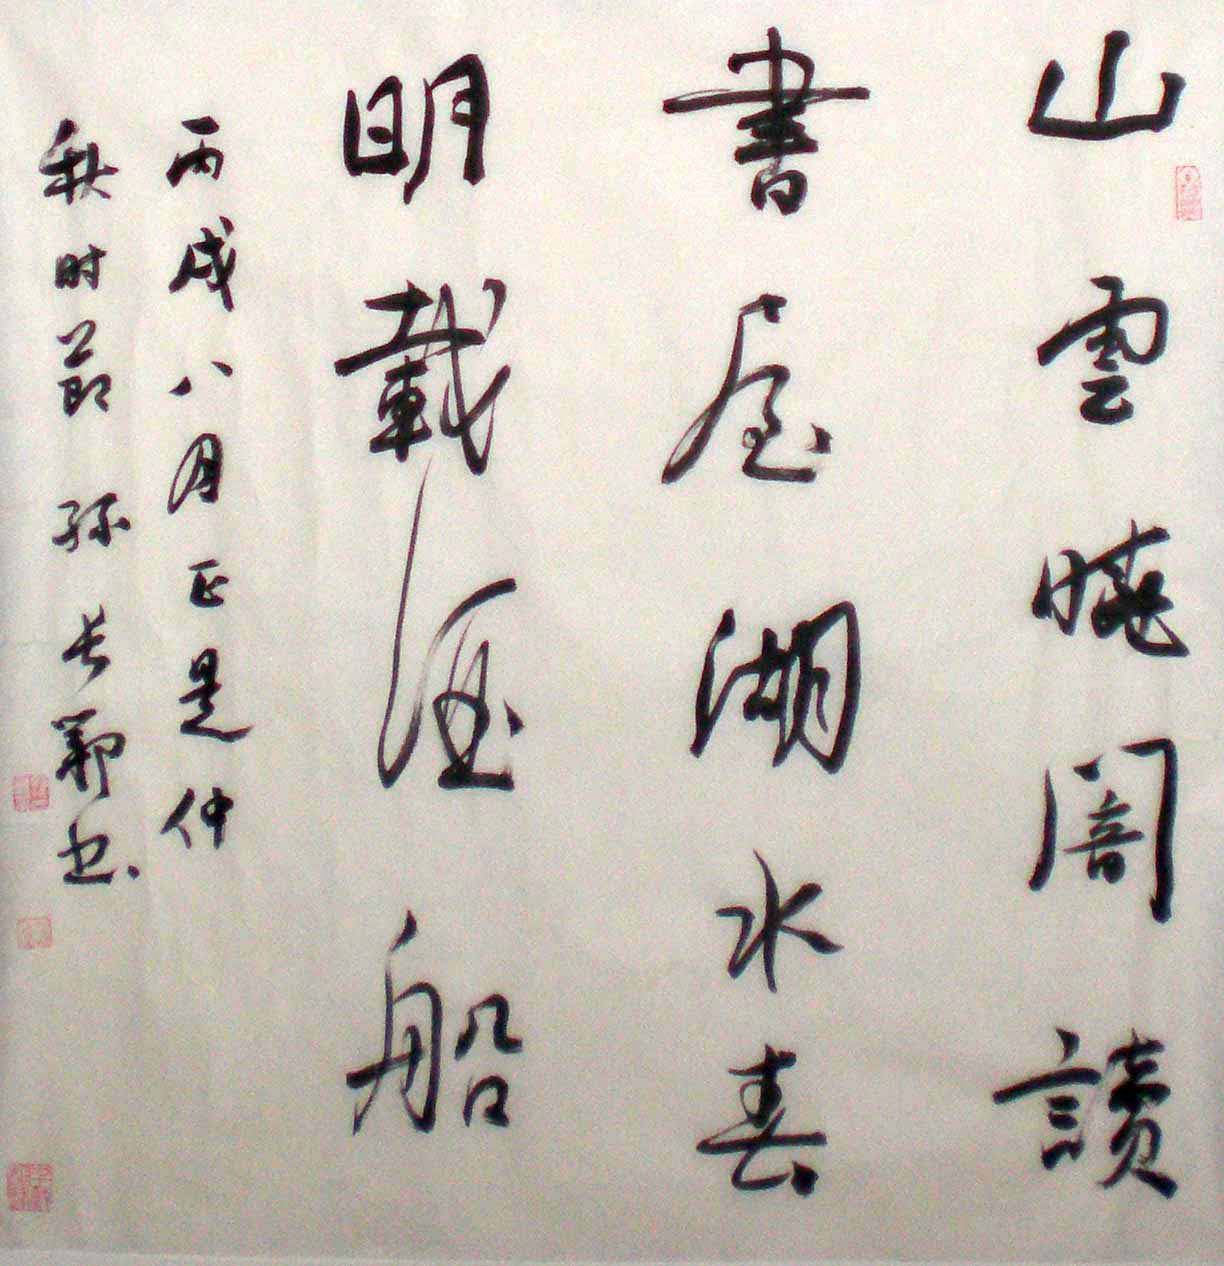 山雲曉闇讀
書屋湖水春
明載酒船
丙戌八月正是仲
秋时節孫长鄰书